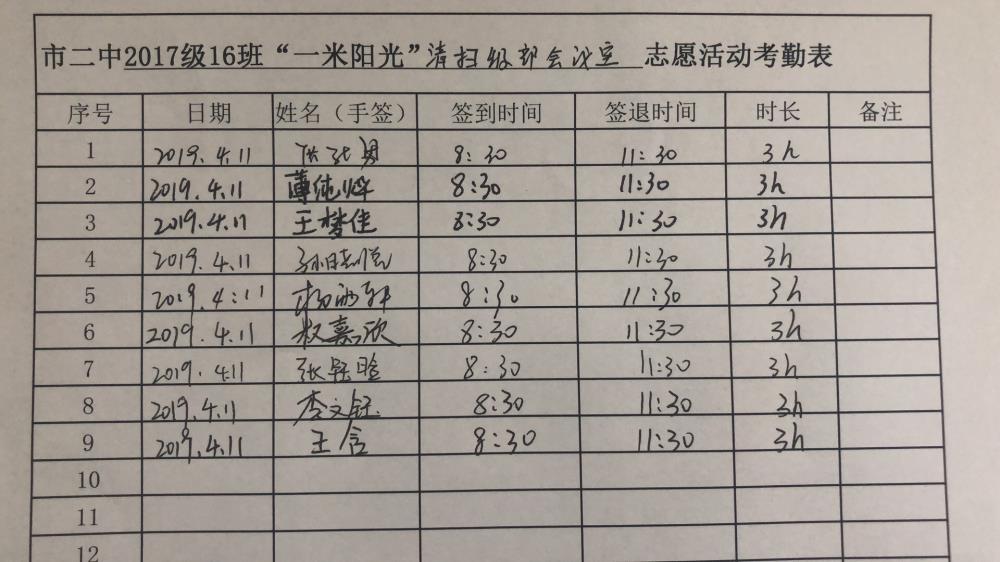 市二中2017级16班“一米阳光”清扫级部会议室 志愿活动考勤表
序号 日期 姓名（手签） 签到时间 签退时间 时长 备注
1 2019.4.11 8:30 11:30 3h
2 2019.4.11 薄纯烨 8:30 11:30 3h
3 2019.4.11 王梦佳 8:30 11:30 3h
4 2019.4.11 8:30 11:30 3h
5 2019.4.11 8:30 11:30 3h
6 2019.4.11 权嘉欣 8:30 11:30 3h
7 2019.4.11 8:30 11:30 3h
8 2019.4.11 李文钰 8:30 11:30 3h
9 2019.4.11 王含 8:30 11:30 3h
10
11
12